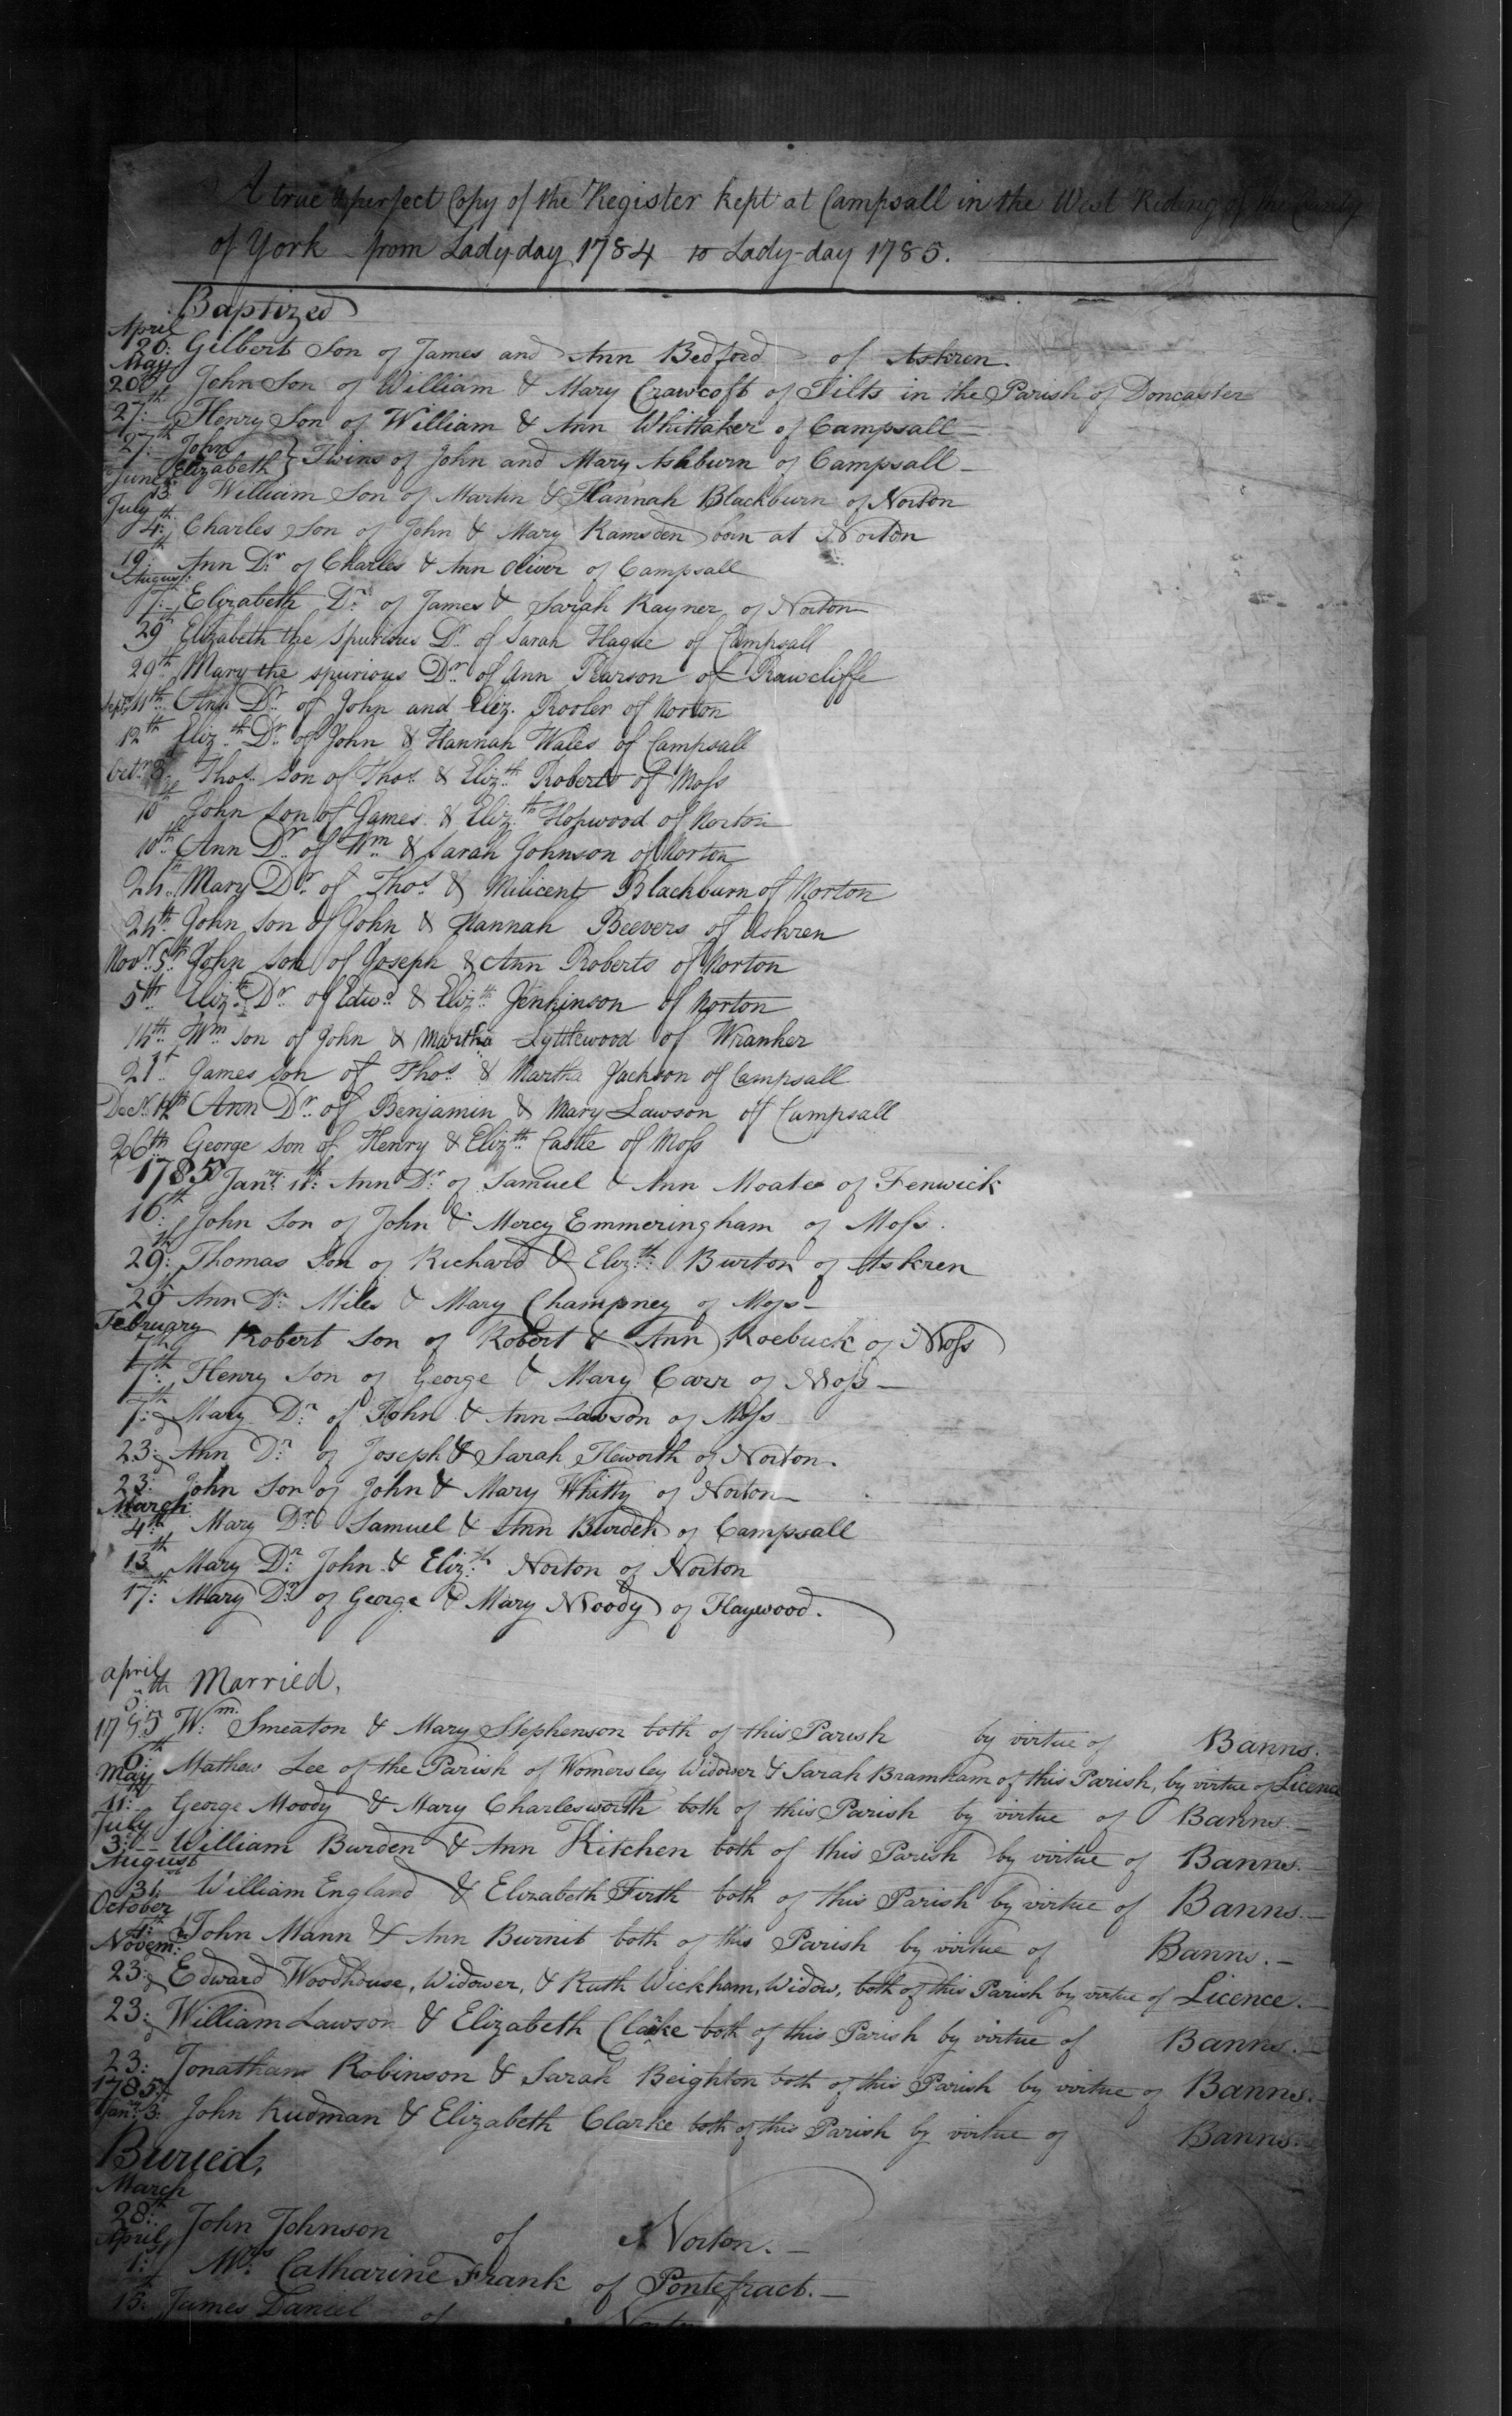 A true & perfect Copy of the Register kept at Campsall in the West Riding of the County
of York from Lady-day 1784 to Lady-day 1785.
Baptized
April
26: Gilbert Son of James and Ann Bedford of Askren.
May
20th John Son of William & Mary Crawcoft of Tilts in the Parish of Doncaster
27th Henry Son of William & Ann Whittaker of Campsall
27th John
Elizabeth } Twins of John and Mary Ashburn of Campsall
June
13 William Son of Martin & Hannah Blackburn of Norton
July
4th Charles Son of John & Mary Ramsden born at Norton
19th Ann Dr. of Charles & Ann Oliver of Campsall
August
7th Elizabeth Dr. of James & Sarah Rayner of Norton
29th Elizabeth the Spurious Dr. of Sarah Hague of Campsall
29th Mary the spurious Dr. of Ann Pearson of Rawcliffe
Sepr. 11th Ann Dr. of John and Eliz. Rooler of Norton
12th Eliz.th Dr. of John & Hannah Wales of Campsall
Octr. 8 Thos. Son of Thos. & Eliz.th Roberts of Moss
10th John Son of James & Eliz.th Hopwood of Norton
10th Ann Dr. of Wm & Sarah Johnson of Norton
24th Mary Dr. of Thos. & Milicent Blackburn of Norton
24th John Son of John & Hannah Beevers of Askren
Novr. 5th John Son of Joseph & Ann Roberts of Norton
5th Eliz.th Dr. of Edwd. & Eliz.th Jenkinson of Norton
14th Wm Son of John & Martha Lyttlewood of Wranker
21st James Son of Thos. & Martha Jackson of Campsall
Decr. 12th Ann Dr. of Benjamin & Mary Lawson of Campsall
26th George Son of Henry & Eliz.th Castle of Moss
1785 Janry. 11th: Ann Dr. of Samuel & Ann Moate of Fenwick
16th: John Son of John & Mercy Emmeringham of Moss.
29th: Thomas Son of Richard & Eliz.th: Burton of Askren
29th Ann Dr. Miles & Mary Champney of Moss
February
7th Robert Son of Robert & Ann Roebuck of Moss
7th: Henry Son of George & Mary Carr of Moss
7th: Mary Dr. of John & Ann Lawson of Moss
23: Ann Dr. of Joseph & Sarah Heworth of Norton.
23: John Son of John & Mary Whitty of Norton
March
4th Mary Dr. Samuel & Ann Burden of Campsall
13th Mary Dr. John & Eliz.th Norton of Norton
17th: Mary Dr. of George & Mary Moody of Haywood.
april Married,
Wm. Smeaton & Mary Stephenson both of this Parish by virtue of Banns.
6th: Mathew Lee of the Parish of Womersley Widower & Sarah Bramham of this Parish, by virtue of Licence
May
11: George Moody & Mary Charlesworth both of this Parish by virtue of Banns.
July
3: William Burden & Ann Kitchen both of this Parish by virtue of Banns.
August
31: William England & Elizabeth Firth both of this Parish by virtue of Banns.
October
4th: John Mann & Ann Burnit both of this Parish by virtue of Banns.
Novem:
23: Edward Woodhouse, Widower, & Ruth Wickham, Widow, both of this Parish by virtue of Licence.
23: William Lawson & Elizabeth Clarke both of this Parish by virtue of Banns.
23: Jonathan Robinson & Sarah Beighton both of this Parish by virtue of Banns.
1785
Janry. 3: John Rudman & Elizabeth Clarke both of this Parish by virtue of Banns.
Buried,
March
28th: John Johnson of Norton.
April
1: Mrs Catharine Frank of Pontefract.
13: James Daniel of Norton